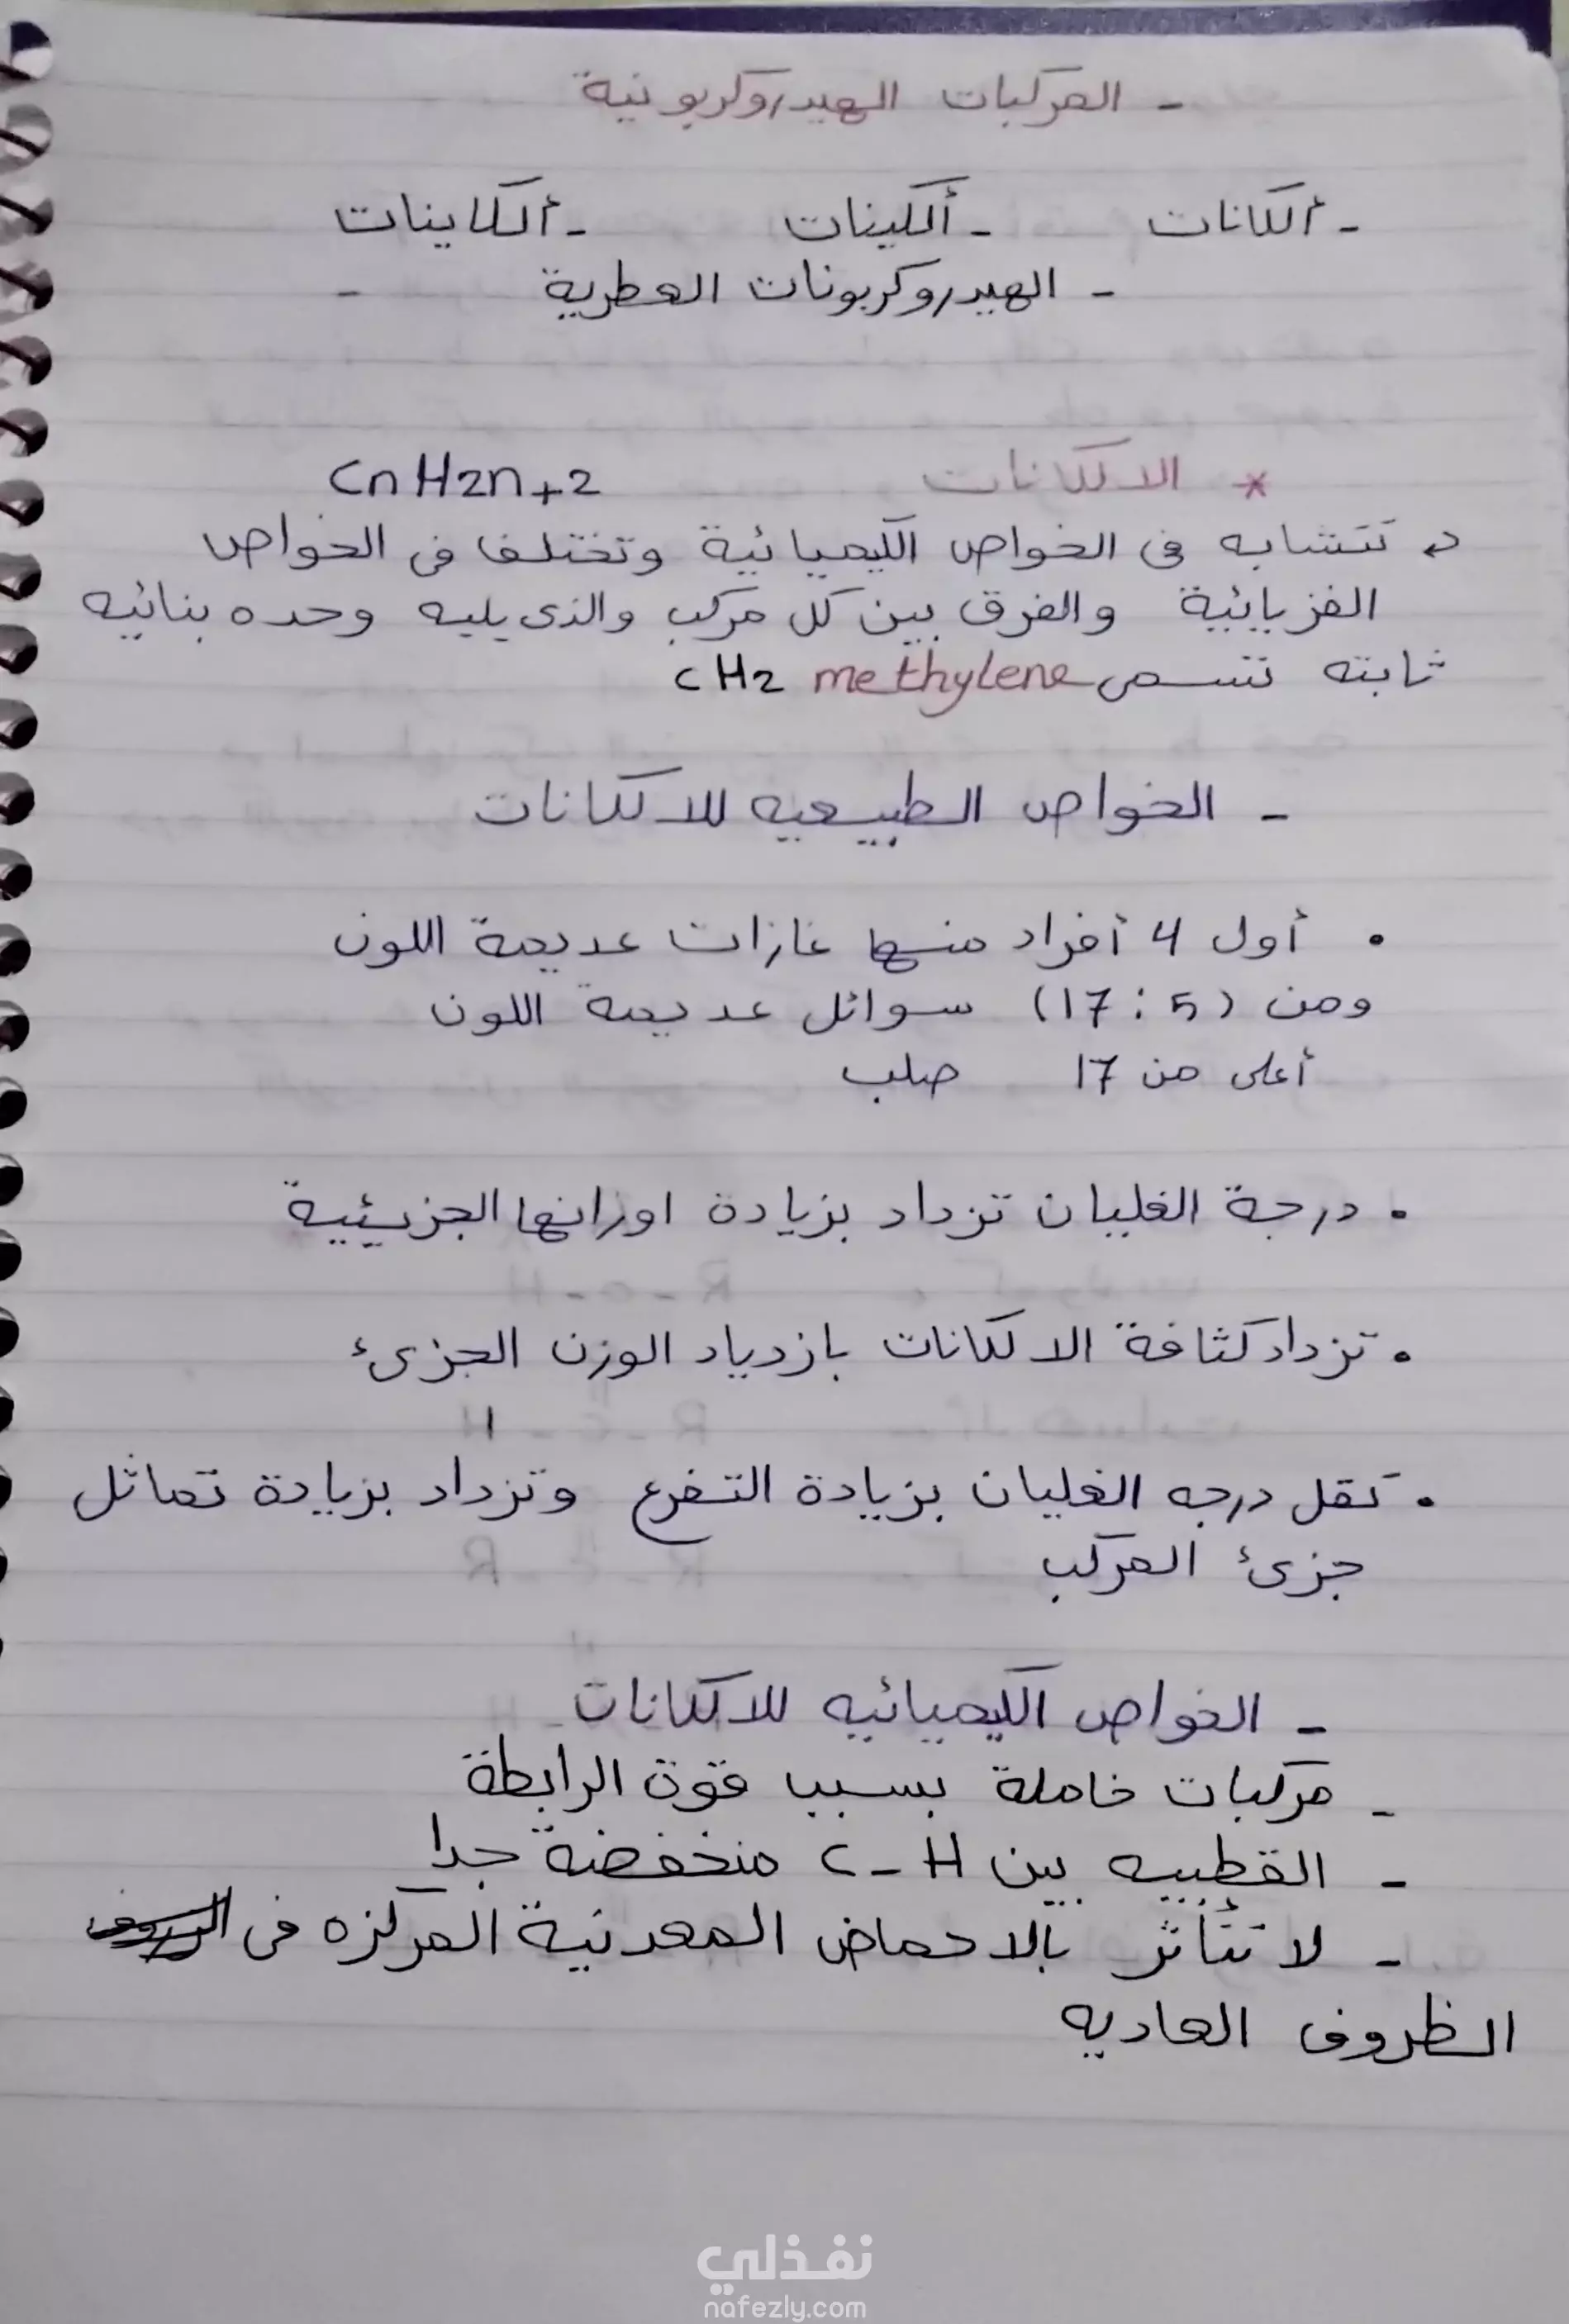 - المركبات الهيدروكربونية
- ألكانات - ألكينات - ألكاينات
- الهيدروكربونات العطرية -
* الالكانات CnH2n+2
تتشابه فى الخواص الكيميائية وتختلف فى الخواص
الفزيائية والفرق بين كل مركب والذى يليه وحده بنائيه
ثابته تتسمى CH2 methylene
- الخواص الطبيعيه للالكانات
• أول 4 أفراد منها غازات عديمة اللون
ومن (5 : 17) سوائل عديمة اللون
أعلى من 17 صلب
• درجة الغليان تزداد بزيادة اوزانها الجزيئية
• تزداد كثافة الالكانات بازدياد الوزن الجزئ
• تقل درجه الغليان بزيادة التفرع وتزداد بزيادة تماثل
جزئ المركب
- الخواص الكيميائيه للالكانات
- مركبات خاملة بسبب قوة الرابطة
- القطبيه بين C-H منخفضة جدا
- لا تتأثر بالاحماض المعدنية المركزه فى
الظروف العاديه
نفذلي
nafezly.com